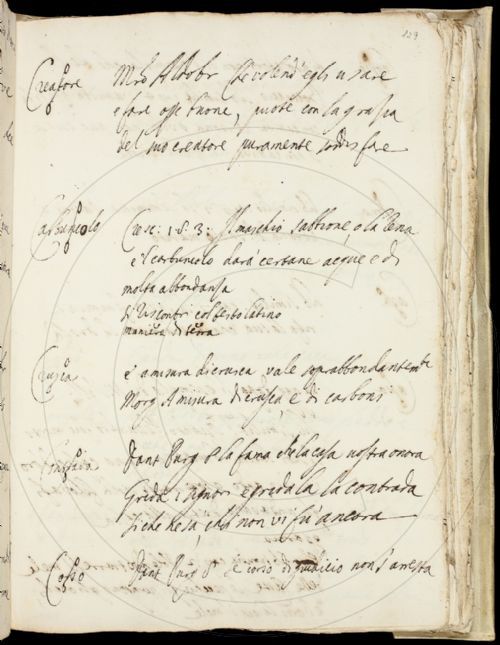 129
Creatore Mro Aldobr che volend' egli usare
e fare opre buone, puote con la grazia
del suo creatore puramente sodisfare
Carbuncolo Cresc: 1. 8. 3: Il maschio sabbione, o la rena
e 'l carbuncolo darà certane acque e di
molta abbondanza
si riscontri col testo latino
maniera di terra
Crusca è a misura di crusca vale soprabbondantemte
Morg A misura di crusca, e di carboni
Contrada Dant Purg 8 la fama che la casa nostra onora
Grida i signori e grida la contrada
si che ne sa, chi non vi fu ancora
Corso Dant Purg 8 se corso di giudicio non s'arresta